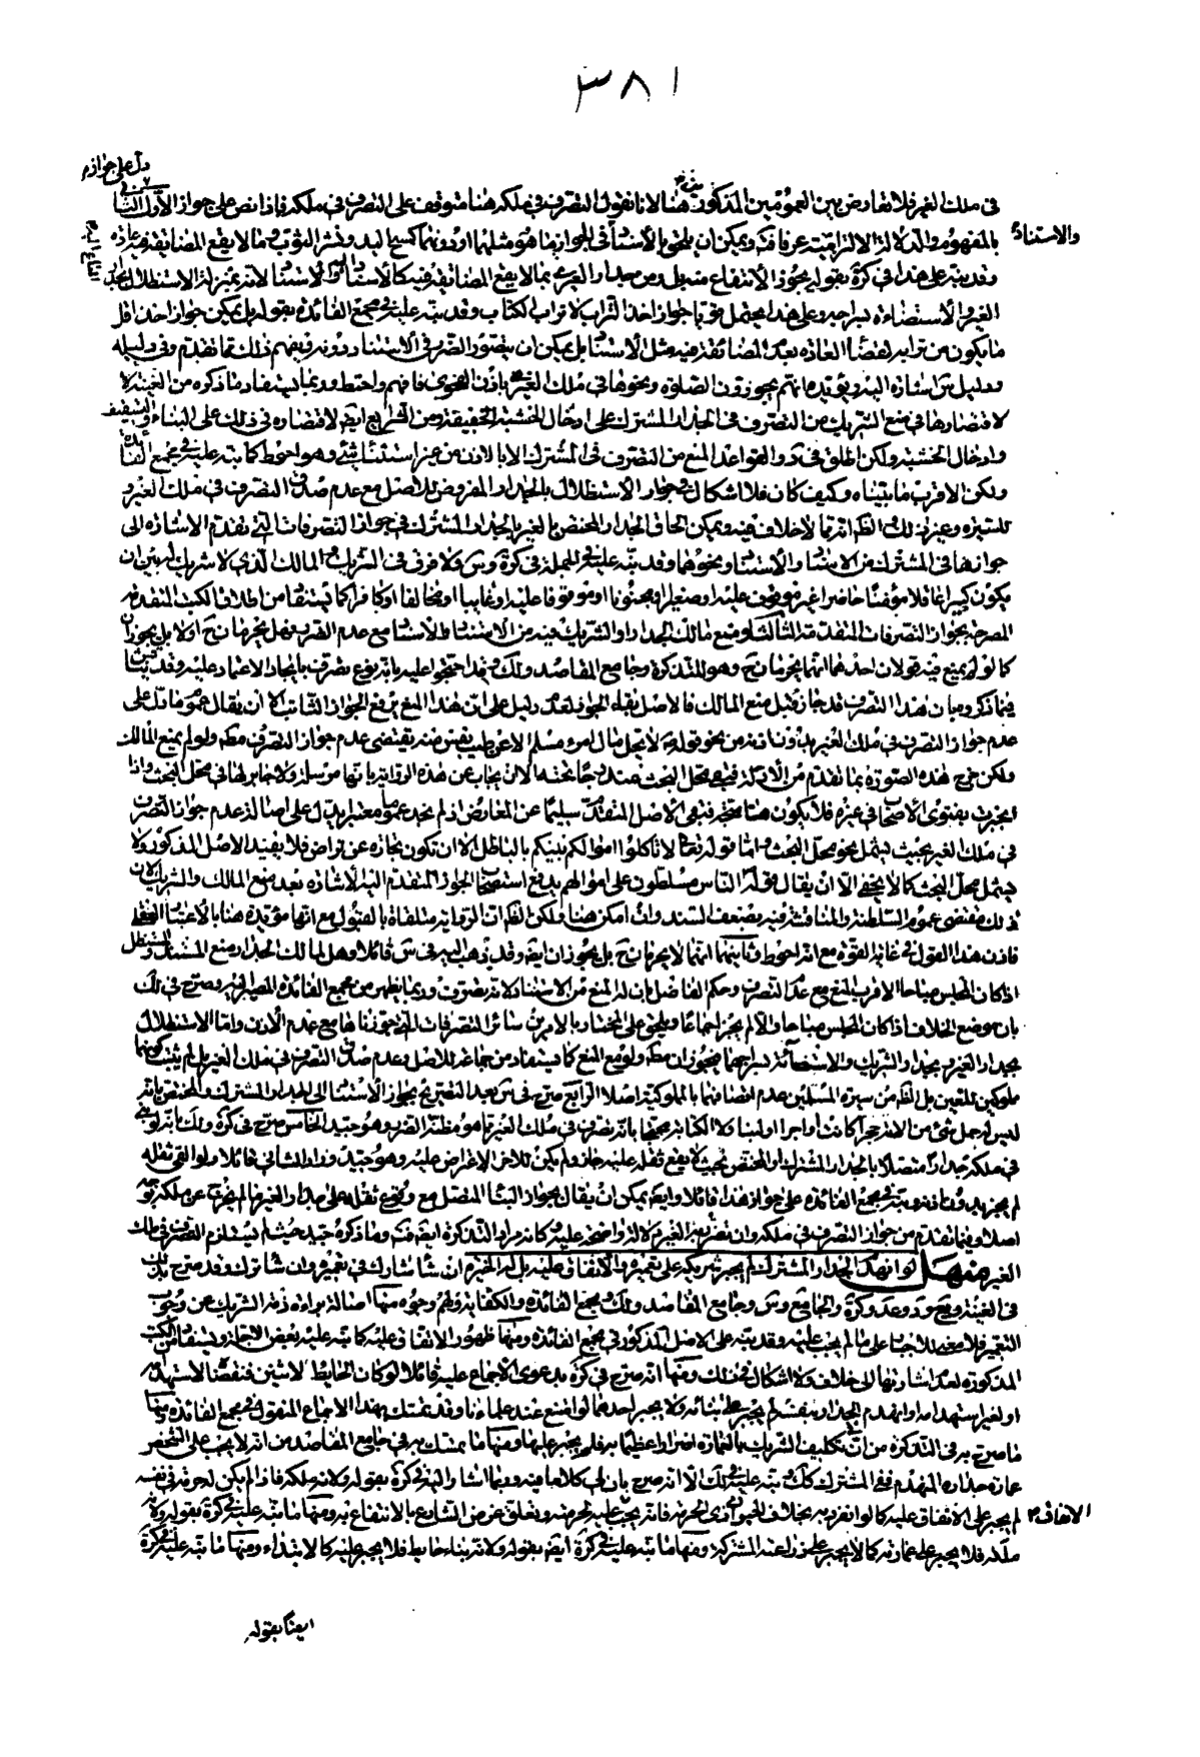 ٣٨١
دل على جوازه
فى ملك الغير فلا تعارض بين العمومين المذكورين هنا لانا نقول التصرف فى ملكه هنا متوقف على التصرف فى ملكه فاذا نص على جواز الاول
والاستناد
بالمفهوم والدلالة الالتزامية عرفا فت ويمكن ان يلحق بالاستناد فى الجواز ما هو مثلهما او دونهما كمسح اليد ونشر الثوب وما لا يقع المضايقة فيه عادة
وقد نبه على هذا فى كرة بقوله يجوز الانتفاع منه بل ومن جدار الغير بما لا يقع المضايقة فيه كالاستناد
الغير والاستضاءة بسراجه وعلى هذا يحتمل قويا جواز اخذ التراب لاتراب الكتاب وقد نبه عليه فى مجمع الفائدة بقوله بل يمكن جواز اخذ اقل
ما يكون من ترابه لقضاء العادة بعدم المضايقة فيه مثل الاستناد بل يمكن ان يتصور الضرر فى الاستناد دونه فيفهم ذلك مما تقدم وفى دليله
ودليل اشارة اليه ويؤيده انهم يجوزون الصلوة ونحوها فى ملك الغير باذن الفحوى فافهم واحتط وربما يستفاد مما ذكره من الغنية
لاقتصارها فى منع الشريك من التصرف فى الجدار المشترك على ادخال الخشبة الخفيفة ومن الشرايع ايضا لاقتصاره فى ذلك على البناء والتسقيف
وادخال الخشبة ولكن اطلق فى عد والقواعد المنع من التصرف فى المشترك الا بالاذن من غير استثناء شئ وهو احوط كما نبه عليه فى مجمع الفائدة
ولكن الاقرب ما بيناه وكيف كان فلا اشكال فى جواز الاستظلال بالجدار المفروض للاصل مع عدم صدق التصرف فى ملك الغير
للسيرة وغير ذلك الظ انه مما لا خلاف فيه ويمكن الحاق الجدار المختص بالغير بالجدار المشترك فى جواز التصرفات التى تقدم الاشارة الى
جوازها فى المشترك من الاستناد والاسناد ونحوهما وقد نبه عليه فى الجملة فى كرة وس ولا فرق فى الشريك والمالك الذى لا شريك له بين ان
يكون كبيرا عاقلا مؤمنا حاضرا غير موقوف عليه او صغيرا او مجنونا او موقوفا عليه او غايبا او مخالفا او كافرا كما يستفاد من اطلاق الكتب المتقدمة
المصرحة بجواز التصرفات المتقدمة الثالث لو منع مالك الجدار والشريك فيه من الاستناد والاسناد مع عدم الضرر فهل يحرمان ح او لا بل يجوزان
كما لو لم يمنع فيه قولان احدهما انهما يحرمان ح وهو للتذكرة وجامع المقاصد ولك وقد احتجوا عليه بانه نوع تصرف بايجاد الاعتماد عليه وقد يناقش
فيما ذكروه بان هذا التصرف قد جاز قبل منع المالك فالاصل بقاء الجواز لعدم دليل على ان هذا المنع يرفع الجواز الثابت الا ان يقال عموم ما دل على
عدم جواز التصرف فى ملك الغير بدون اذنه من نحو قوله لا يحل مال امرء مسلم الا عن طيب نفس منه يقتضى عدم جواز التصرف مطلقا ولو لم يمنع المالك
ولكن خرج هذه الصورة بما تقدم من الادلة فيبقى محل البحث مندرجا تحته الا ان يجاب عن هذه الرواية بانها مرسلة ولا جابر لها فى محل البحث واذا
انجبرت بفتوى الاصحاب فى غيره فلا يكون هنا منجبرة فيبقى الاصل المتقدم سليما عن المعارض اذ لم نجد عموما معتبرا يدل على اصالة عدم جواز التصرف
فى ملك الغير بحيث يشمل نحو محل البحث واما قوله تعالى لا تاكلوا اموالكم بينكم بالباطل الا ان تكون تجارة عن تراض فلا يفيد الاصل المذكور ولا
يشمل محل البحث كما لا يخفى الا ان يقال قوله الناس مسلطون على اموالهم يدفع استصحاب الجواز المتقدم اليه الاشارة بعد منع المالك والشريك لان
ذلك مقتضى عموم السلطنة والمناقشة فيه بضعف السند وان امكن هنا ولكن الظ ان الرواية متلقاة بالقبول مع انها مؤيدة هنا بالاعتبار العقلى
فاذن هذا القول فى غاية القوة مع انه احوط وثانيهما انهما لا يحرمان ح بل يجوزان ايضا وقد ذهب اليه فى س قائلا وهل لمالك الجدار منع المستند والمستظل
اذا كان المجلس مباحا الاقرب المنع مع عدم التصرف وحكم الفاضل بان له المنع من الاستناد لانه تصرف وربما يظهر من مجمع الفائدة المصير اليه وصرح فى لك
بان موضع الخلاف اذا كان المجلس مباحا والا لم يجز اجماعا ويلحق على المختار بالامرين سائر التصرفات التى جوزناها مع عدم الاذن واما الاستظلال
بجدار الغير وبجدار الشريك والاستضائة بسراجهما فيجوزان مطلقا ولو مع المنع كما يستفاد من جماعة للاصل وعدم صدق التصرف فى ملك الغير بل لم يثبت كونهما
مملوكين للمعين بل الظ من سيرة المسلمين عدم اتصافهما بالملوكية اصلا الرابع صرح فى س بعد التصريح بجواز الاستناد الى الجدار المشترك والمختص بانه
ليس لاجل شئ من الاخر حجرا كانت او اجرا او لبنا
فى ملكه جدارا متصلا بالجدار المشترك او المختص بحيث لا يقع ثقله عليه جاز ولم يكن للاخر الاعتراض عليه وهو جيد وزاد الثانى قائلا ولو القى ثقله
لم يجز بدون اذنه ونبه فى مجمع الفائدة على جواز هذا قائلا وايضا يمكن ان يقال بجواز البناء المتصل مع وقوع ثقله على جدار الغير
اصلا وفيما تقدم من جواز التصرف فى ملكه وان تضرر به الغير دلالة واضحة عليه كانه مراد التذكرة ايضا فت وما ذكره جيد حيث لم يستلزم التصرف فى ملك
الغير منهل لو انهدم الجدار المشترك لم يجبر شريكه على تعميره والانفاق عليه بل له الخيرة ان شاء شارك فى تعميره وان شاء ترك وقد صرح بذلك
فى الغنية ويع وعد وكرة والجامع وس وجامع المقاصد ولك ومجمع الفائدة والكفاية ولهم وجوه منها اصالة براءة ذمة الشريك عن وجوب
التعمير فلا معنى للاجبار على ما لم يجب عليه وقد نبه على الاصل المذكور فى مجمع الفائدة ومنها ظهور الاتفاق عليه كما نبه عليه بعض الاجلة ويستفاد من الكتب
المذكورة لعدم اشارتها الى خلاف ولا اشكال فى ذلك ومنها انه صرح فى كرة بدعوى الاجماع عليه قائلا لو كان الحايط لاثنين فنقضاه لاستهدامه
او لغير استهدامه او انهدم الجدار بنفسه لم يجبر على بنائه ولا يجبر احدهما لو امتنع عند علماءنا وقد تمسك بهذا الاجماع المنقول فى مجمع الفائدة ومنها
ما صرح به فى التذكرة من ان تكليف الشريك بالعمارة اضرارا عظيما به فلم يجبر عليها ومنها ما تمسك به فى جامع المقاصد من انه لا يجب على الشخص
عمارة جداره المنهدم ففى المشترك كك ونبه عليه فى لك الا انه صرح بان فى كلامها فيه ومنها ما اشار اليه فى كرة بقوله ولانه ملكه فاذا لم يكن له حرمة فى نفسه
الانفاق
لم يجبر على الانفاق عليه كما لو انفرد به بخلاف الحيوان ذى الحرمة فانه يجب عليه لحرمته وتعلق غرض الشارع بالانتفاع به ومنها ما نبه عليه فى كرة بقوله ولانه
ملكه فلا يجبر على عمارته كما لا يجبر على زراعة المشتركة ومنها ما نبه عليه فى كرة ايضا بقوله ولانه بناء حايط فلا يجبر عليه كالابتداء ومنها ما نبه عليه فى كرة
ايضا بقوله